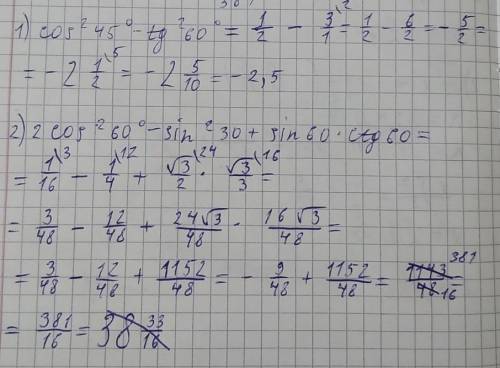 1) cos²45° - tg²60° = 1/2 - 3/1\² = 1/2 - 6/2 = - 5/2 =
= -2 1/2\⁵ = -2 5/10 = -2,5
2) 2 cos²60° - sin²30 + sin60 · ctg60 =
= 1/16\³ - 1/4\¹² + √3/2\²⁴ · √3/3\¹⁶ =
= 3/48 - 12/48 + 24√3/48 · 16√3/48 =
= 3/48 - 12/48 + 1152/48 = - 9/48 + 1152/48 = 1143/48 381 16 =
= 381/16 = 38 33/16